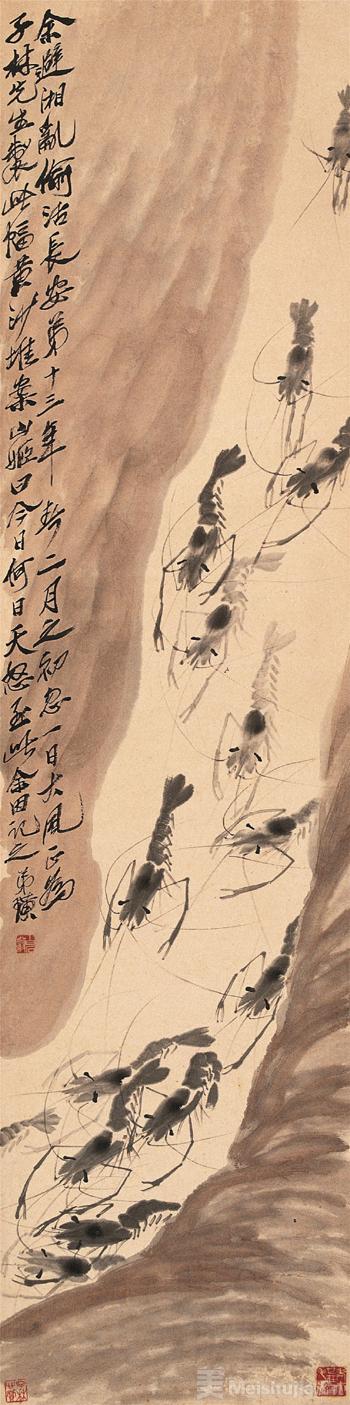 余避湘亂偷活長安第十三年春二月之初忽一日大風正為
子林先生製此幅黃沙堆案山姬曰今日何日天怒至此余因記之弟璜
美 Meishujia.cn